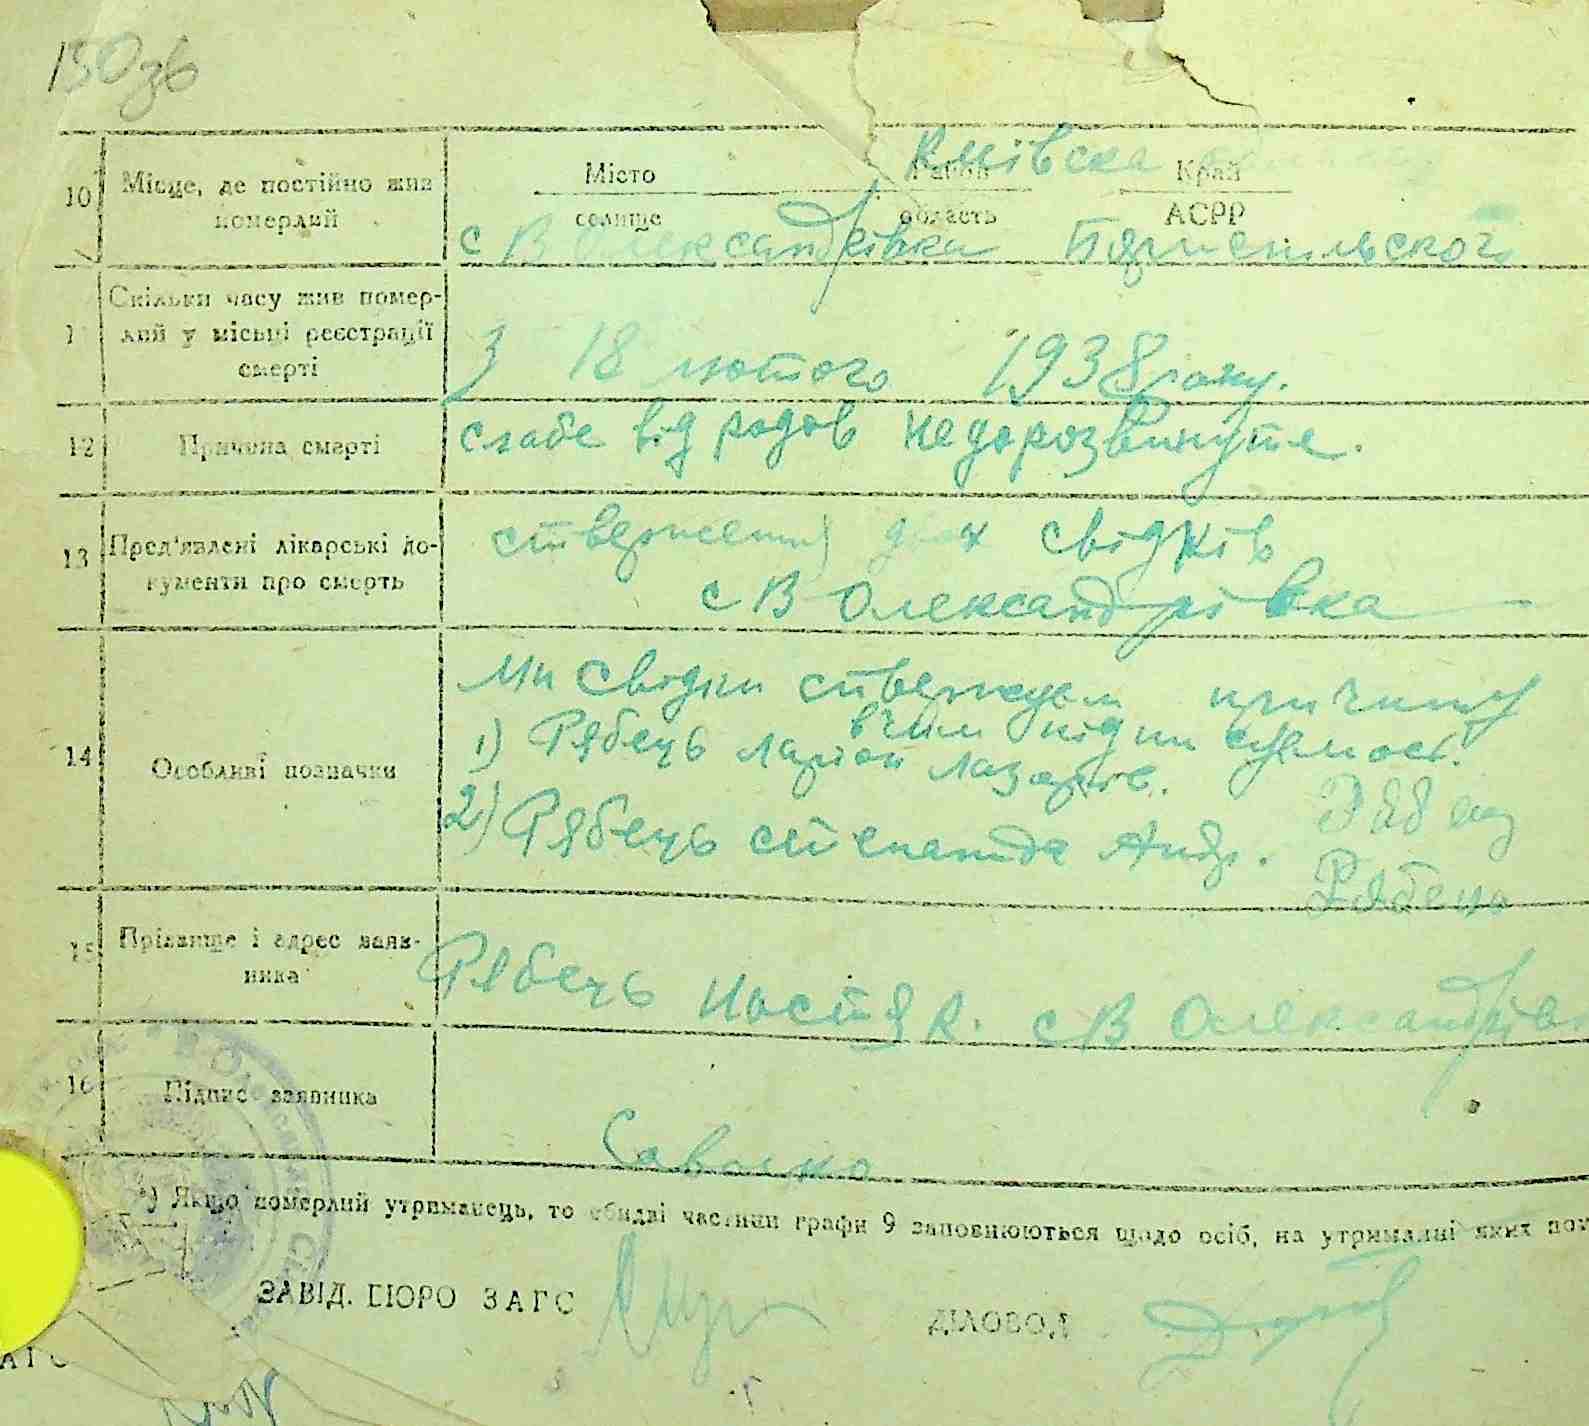 150зв
10 Місце, де постійно жив померлий
Місто Район Край
селище область АСРР
Київська
с В Олександрівка Бориспільського
1 Скільки часу жив помер-
лий у місці реєстрації
смерті
З 18 лютого 1938 року.
12 Причина смерті
слабе від родов недорозвинуте.
13 Пред'явлені лікарські до-
кументи про смерть
двох свідків
с В Олександрівка
14 Особливі позначки
Ми свідки причину
в чим
1) Рябець Ларіон Лазарів.
2) Рябець Степанида Андр.
Рябец
Рябець
15 Прізвище і адрес заяв-
ника
Рябець Настя К. с В Олександрівка
16 Підпис заявника
*) Якщо померлий утриманець, то обидві частини графи 9 заповнюються щодо осіб, на утриманні яких пом
ЗАВІД. БЮРО ЗАГС
ДІЛОВОД
АГС